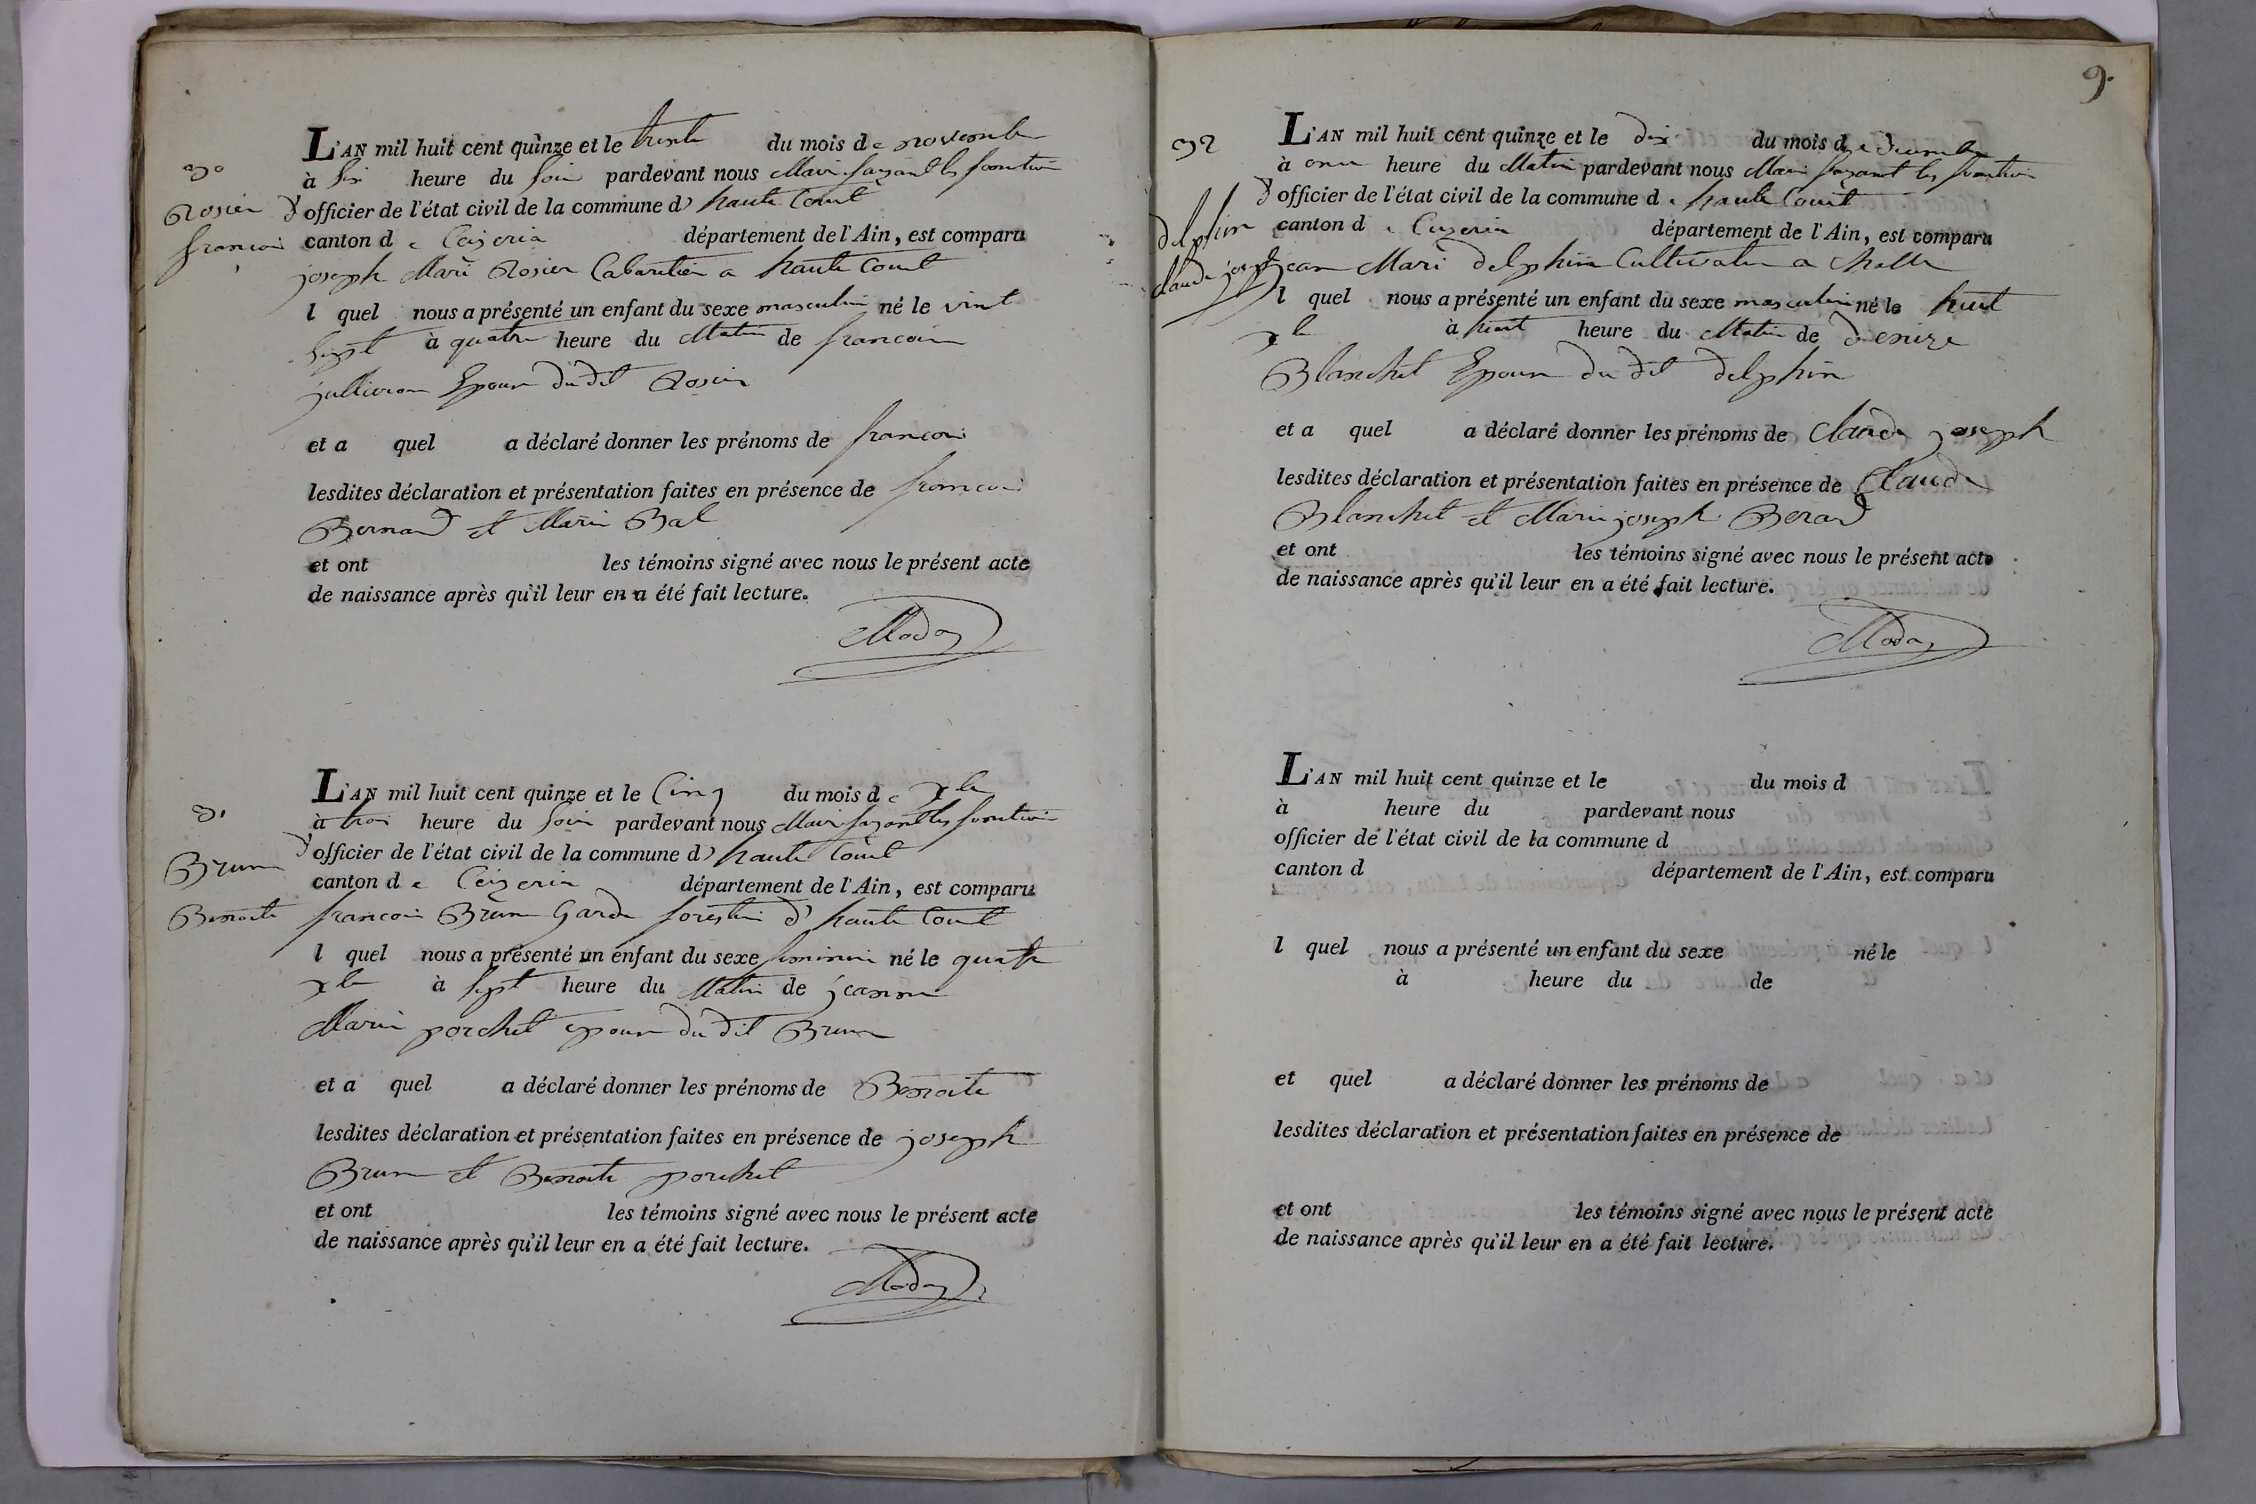 30
Rosier
françois
L'AN mil huit cent quinze et le trente du mois de novembre
à six heure du soir pardevant nous Maire fayant les fonction
d'officier de l'état civil de la commune d' haute Court
canton de Ceizeria département de l'Ain, est comparu
joseph Marie Rosier Cabaretier a haute Court
l quel nous a présenté un enfant du sexe masculin né le vint
sept à quatre heure du Matin de françoise
jullieron Epouse du dit Rosier
et a quel a déclaré donner les prénoms de françois
lesdites déclaration et présentation faites en présence de françois
Bernard et Marie Bal
et ont les témoins signé avec nous le présent acte
de naissance après qu'il leur en a été fait lecture.
31
Brun
Benoite
L'AN mil huit cent quinze et le Cinq du mois de xbre
à trois heure du soir pardevant nous Maire fayant les fonction
d'officier de l'état civil de la commune d' haute Court
canton de Ceizeria département de l'Ain, est comparu
françois Brun Garde forestier d' haute Court
l quel nous a présenté un enfant du sexe feminin né le quatre
xbre à sept heure du Matin de jeanne
Marie porchet epouse du dit Brun
et a quel a déclaré donner les prénoms de Benoite
lesdites déclaration et présentation faites en présence de joseph
Brun et Benoite porchet
et ont les témoins signé avec nous le présent acte
de naissance après qu'il leur en a été fait lecture.
9.
32
delphin
claude joseph
L'AN mil huit cent quinze et le dix du mois de decembre
à onze heure du Matin pardevant nous Maire fayant les fonction
d'officier de l'état civil de la commune d haute Court
canton de Ceyzeria département de l'Ain, est comparu
jean Marie delphin Cultivateur a Challe
l quel nous a présenté un enfant du sexe masculin né le huit
xbre à huit heure du Matin de denize
Blanchet Epouse du dit delphin
et a quel a déclaré donner les prénoms de Claude joseph
lesdites déclaration et présentation faites en présence de Claude
Blanchet et Marie joseph Berard
et ont les témoins signé avec nous le présent acte
de naissance après qu'il leur en a été fait lecture.
L'AN mil huit cent quinze et le du mois d
à heure du pardevant nous
officier de l'état civil de la commune d
canton d département de l'Ain, est comparu
l quel nous a présenté un enfant du sexe né le
à heure du de
et quel a déclaré donner les prénoms de
lesdites déclaration et présentation faites en présence de
et ont les témoins signé avec nous le présent acte
de naissance après qu'il leur en a été fait lecture.